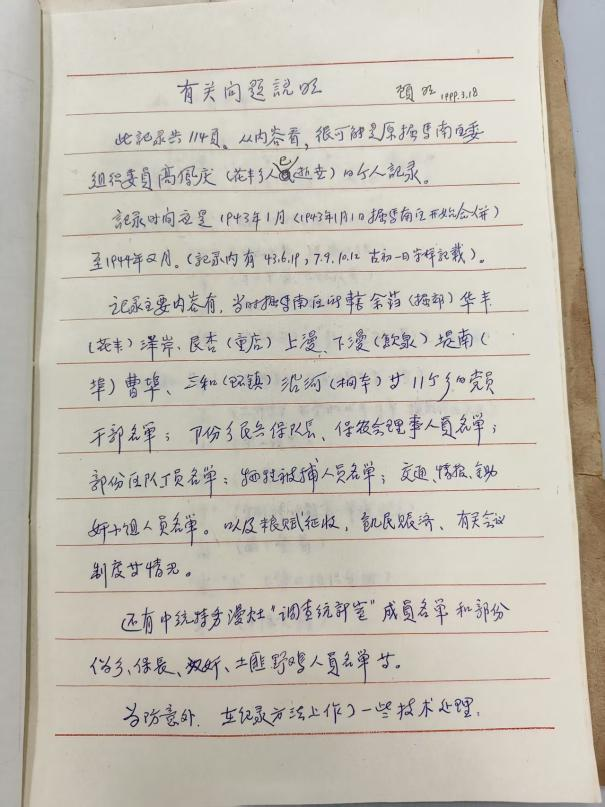 有关问题說明 顾明 1999.3.18
此記录共114頁。从内容看，很可能是原掘馬南区委
组织委員高鳳庆（花丰乡人已逝世）的个人記录。
記录时间应是1943年1月（1943年1月1日掘馬南区开始合併）
至1944年2月。（記录内有43.6.19；7.9.10.12 古初一日字样記载）。
記录主要内容有，当时掘馬南区所轄余蕩（掘部）华丰
（花丰）洋岸、民杏（童店）上漫、下漫（飲泉）堤南（
埠）曹埠、三和（环镇）沿河（桐本）等11个乡的党員
干部名單；部份乡民兵保队長、保农会理事人員名單；
部份区队丁員名單；牺牲被捕人員名單；交通、情报、鋤
奸小组人員名單。以及粮赋征收，飢民賑济、有关会议
制度等情况。
还有中统特务漫灶“調查統計室”成員名單和部份
伪乡、保長、汉奸、土匪野鸡人員名單等。
为防意外，在纪录方法上作了一些技术处理；